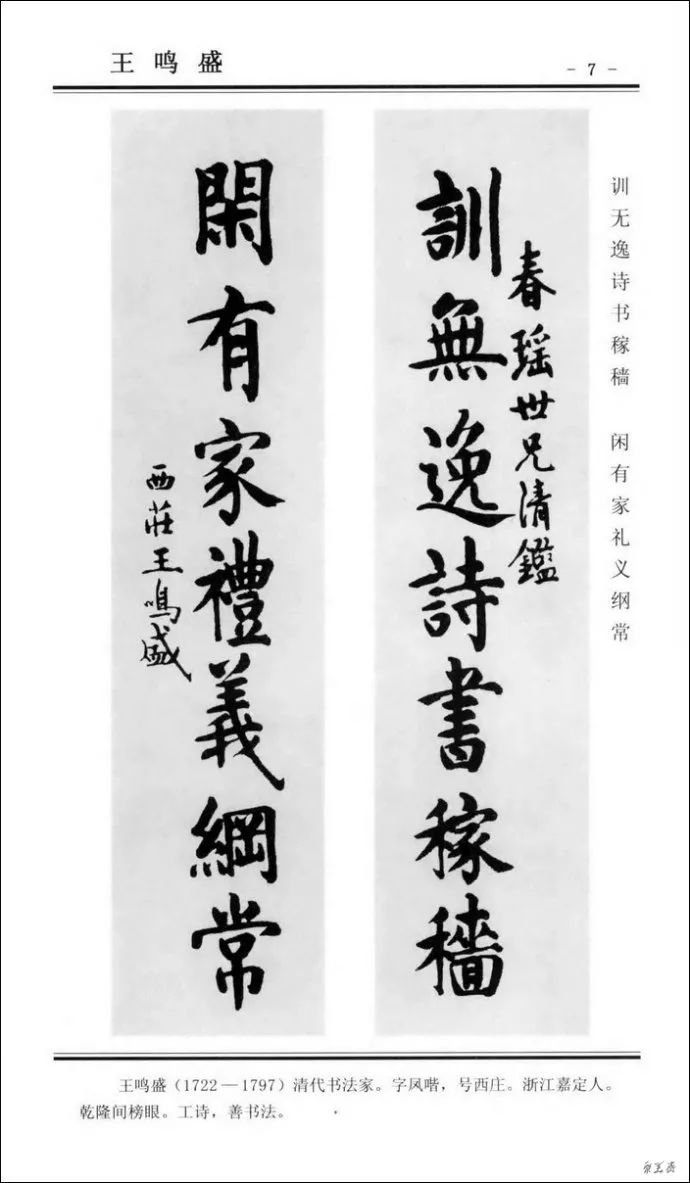 王鸣盛
- 7 -
训无逸诗书稼穑 闲有家礼义纲常
春瑶世兄清鑑
訓無逸詩書稼穡
閑有家禮義綱常
西莊王鳴盛
王鸣盛（1722—1797）清代书法家。字凤喈，号西庄。浙江嘉定人。
乾隆间榜眼。工诗，善书法。